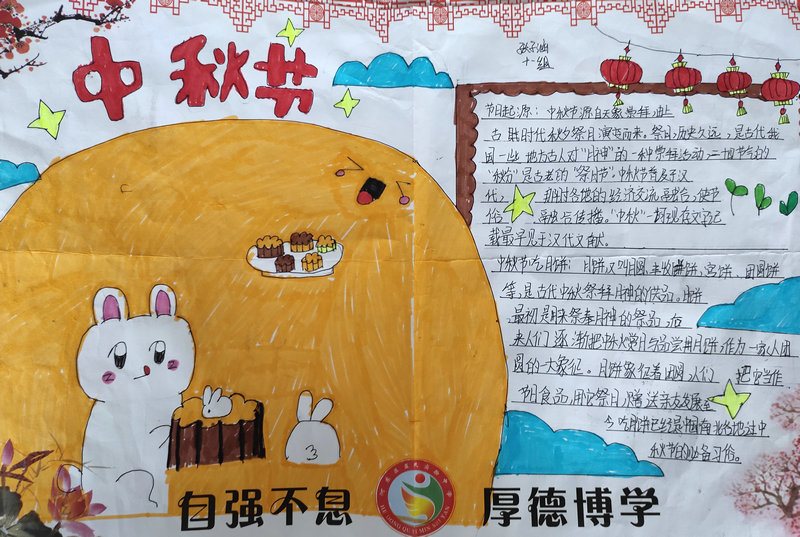 中秋节
十一组
节日起源：中秋节源自天象崇拜，由上
古时代秋夕祭月演变而来。祭月，历史久远，是古代我
国一些地方古人对"月神"的一种崇拜活动，二十四节气的
"秋分"是古老的"祭月节"。中秋节普及于汉
代，那时各地的经济交流融合，使节
俗融合传播。"中秋"一词现在文字记
载最早见于汉代文献。
中秋节吃月饼：月饼，又叫月团、丰收饼、宫饼、团圆饼
等，是古代中秋祭拜月神的供品。月饼
最初是用来祭奉月神的祭品，后
来人们逐渐把中秋赏月与品尝月饼，作为一家人团
圆的一大象征。月饼象征着团圆，人们把它当作
节日食品，用它祭月、赠送亲友。发展至
今吃月饼已经是中国南北各地过中
秋节的必备习俗。
自强不息
厚德博学